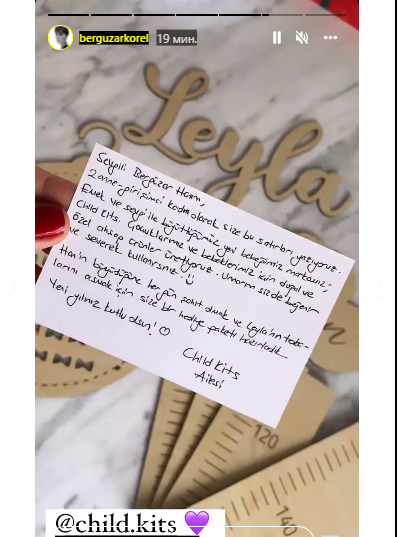 berguzarkorel 19 мин.
Leyla
Sevgili Bergüzar Hanım,
2 anne-girişimci kadın olarak size bu satırları yazıyoruz.
Emek ve sevgi ile büyüttüğümüz yeni bebeğimiz markamız,
Child Kits. Çocuklarımız ve bebeklerimiz için doğal ve
özel ahşap ürünler üretiyoruz. Umarım siz de beğenir
ve severek kullanırsınız
Han'ın büyüdüğüne her gün şahit olmak ve Leyla'nın
larını asmak için size bir hediye paketi hazırladık
Yeni yılınız kutlu olsun! ☺
Child Kits
Ailesi
120
140
@child.kits 💜